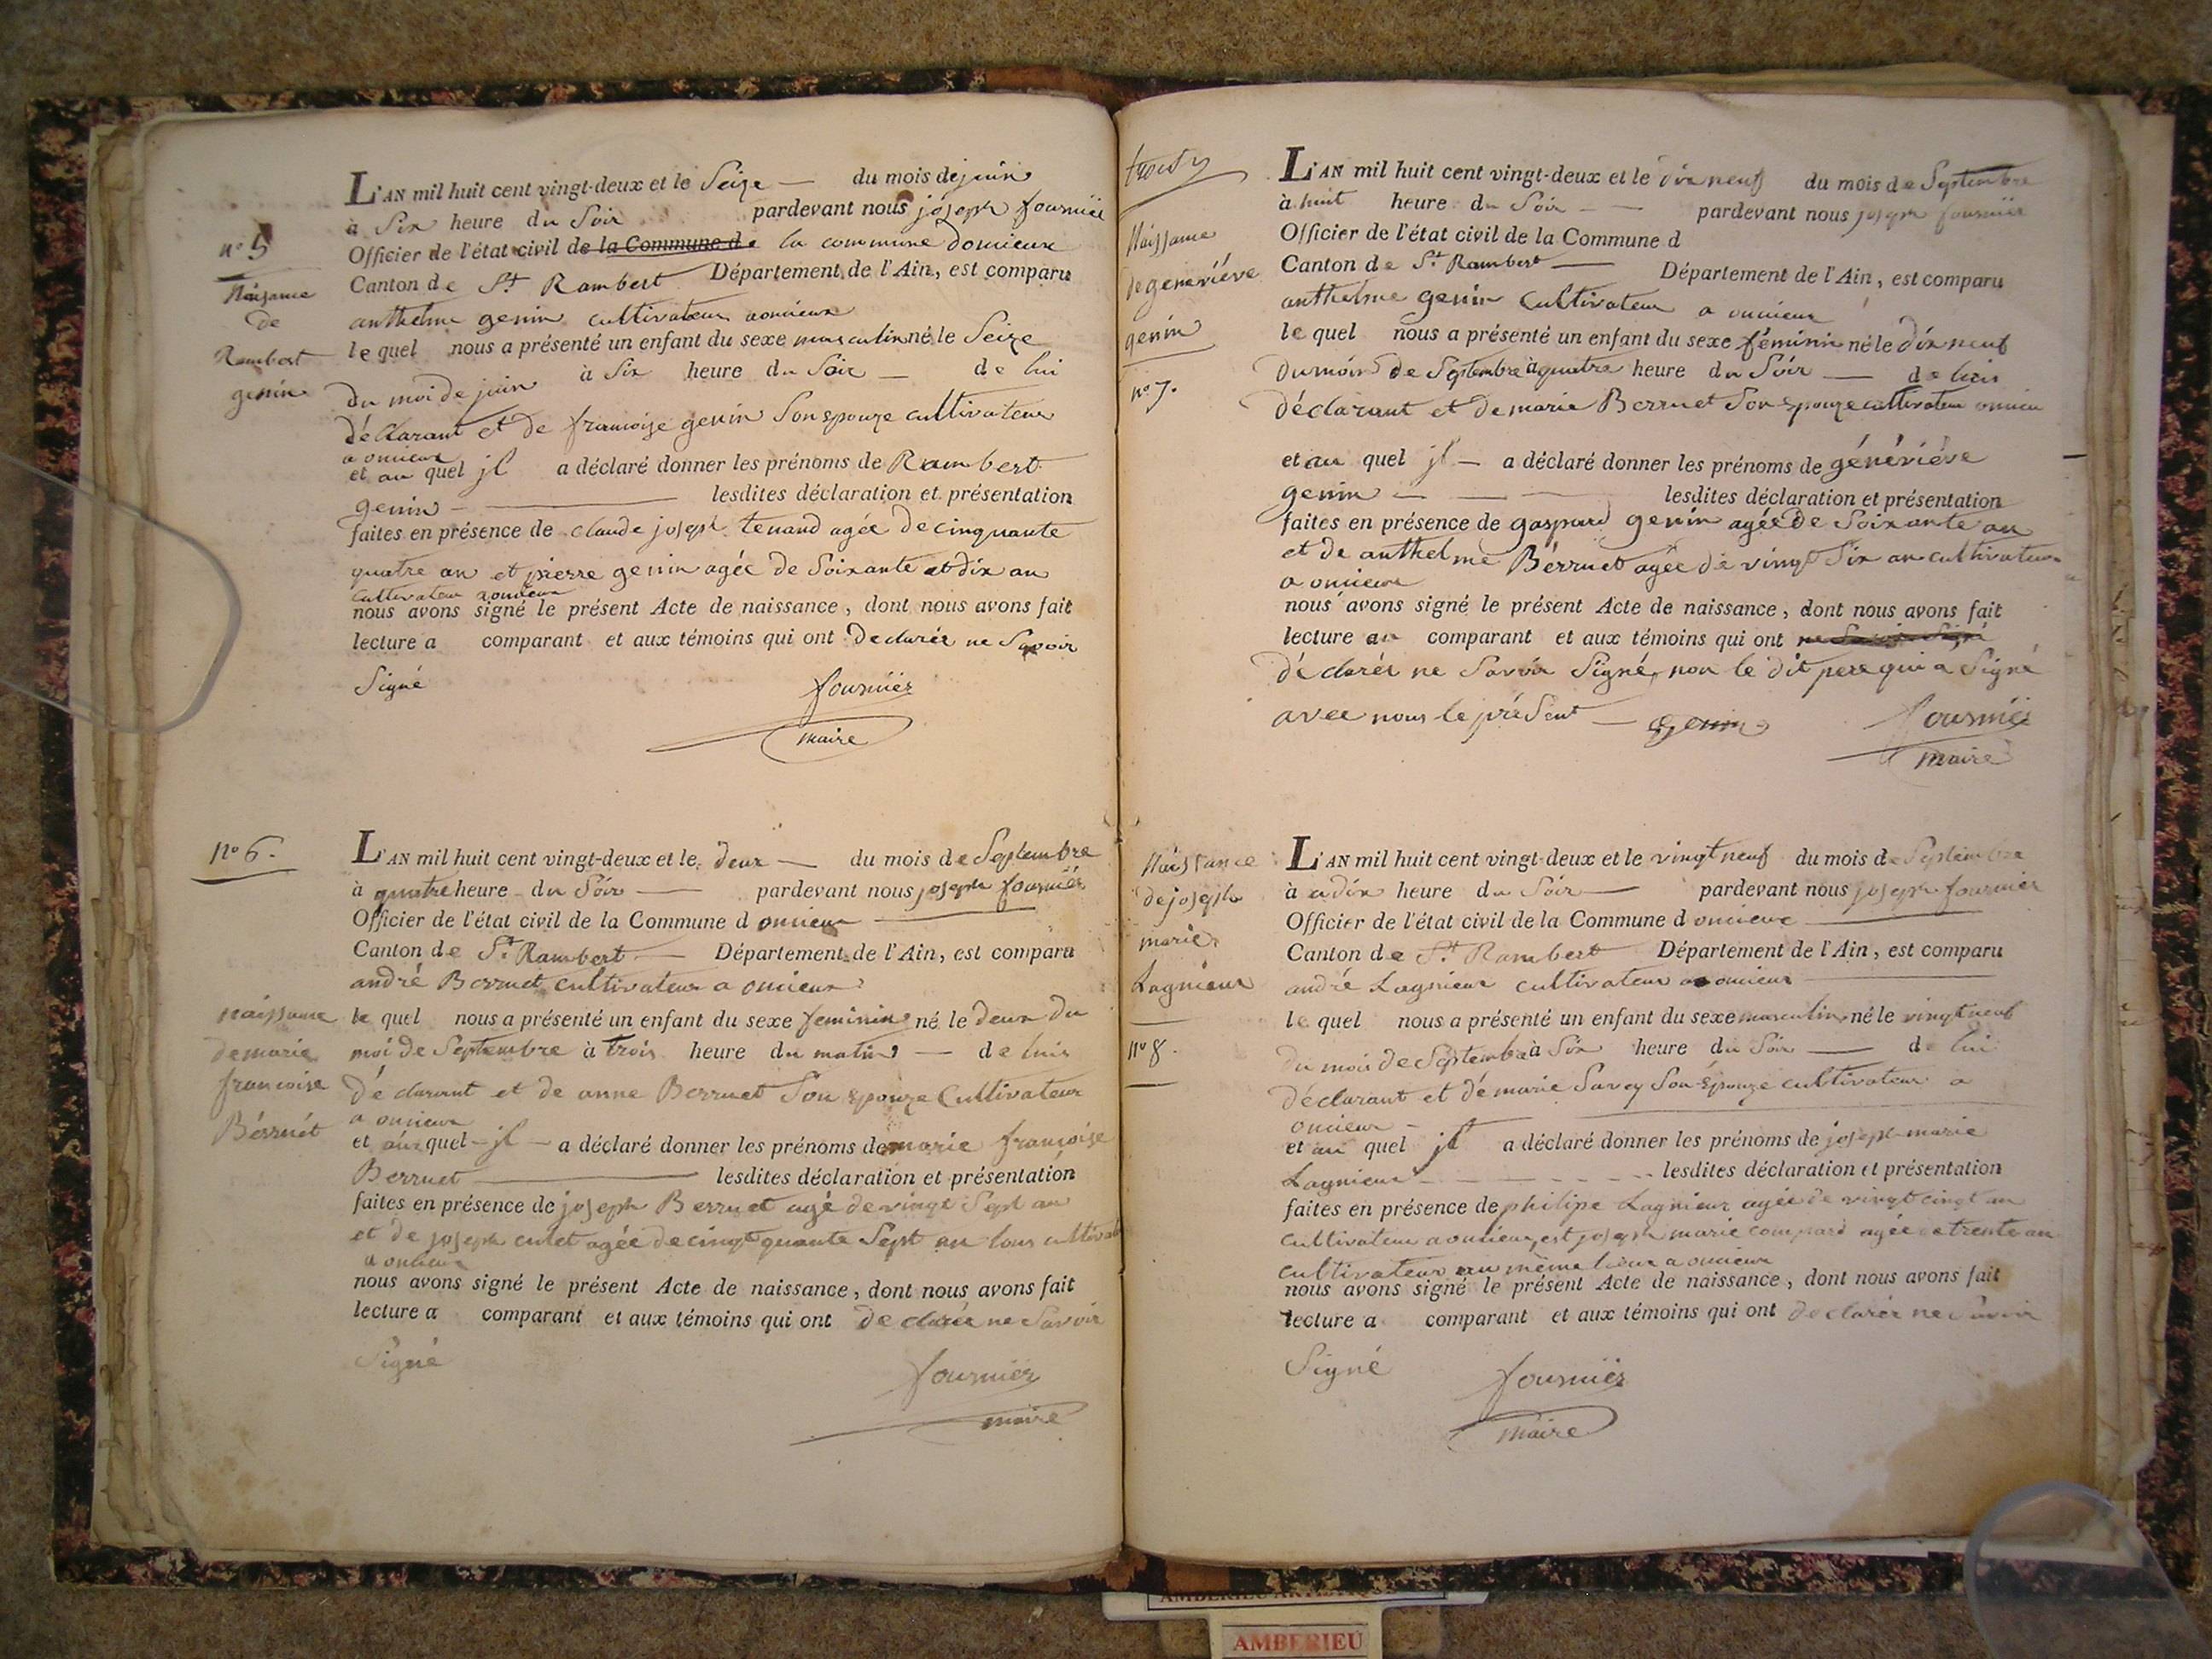 n° 5
Naisance
de
Rambert
genin
L'AN mil huit cent vingt-deux et le Seize — du mois de juin
à Six heure du Soir pardevant nous joseph fournier
Officier de l'état civil de la Commune de la commune domieux
Canton de St Rambert Département de l'Ain, est comparu
anthelme genin cultivateur aomieux
le quel nous a présenté un enfant du sexe masculin né le Seize
du moi de juin à Six heure du Soir — de lui
déclarant et de francoise genin Son epouze cultivateur
a omieux
et au quel jl a déclaré donner les prénoms de Rambert
genin — lesdites déclaration et présentation
faites en présence de claude joseph tenand agée de cinquante
quatre an et pierre genin agée de Soixante et dix an
cultivateur aomieux
nous avons signé le présent Acte de naissance, dont nous avons fait
lecture a comparant et aux témoins qui ont declarér ne Savoir
Signé
fournier
maire
n° 6.
naissane
de marie
francoise
Bérruét
L'AN mil huit cent vingt-deux et le deux — du mois de Septembre
à quatre heure du Soir — pardevant nous joseph fournier
Officier de l'état civil de la Commune d omieux —
Canton de St Rambert — Département de l'Ain, est comparu
andré Berruet cultivateur a omieux
le quel nous a présenté un enfant du sexe feminin né le deux du
moi de Septembre à trois heure du matin — de luis
déclarant et de anne Berruet Son epouze Cultivateur
a omieux
et aux quel — jl — a déclaré donner les prénoms de marie françoise
Berruet — lesdites déclaration et présentation
faites en présence de joseph Berruet agé de vingt Sept an
et de joseph culet agée de cingt quante Sept an tous cultivat
a omieux
nous avons signé le présent Acte de naissance, dont nous avons fait
lecture a comparant et aux témoins qui ont declarér ne Savoir
Signé
fournier
maire
Naissane
de geneviéve
genin
n° 7.
L'AN mil huit cent vingt-deux et le dix neuf du mois de Septembre
à huit heure du Soir — pardevant nous joseph fournier
Officier de l'état civil de la Commune d
Canton de St Rambert — Département de l'Ain, est comparu
anthelme genin Cultivateur a omieux
le quel nous a présenté un enfant du sexe féminin né le dix neuf
du mois de Septembre à quatre heure du Soir — de luis
déclarant et de marie Berruet Son epouze cultivateur omieu
et au quel jl — a déclaré donner les prénoms de généviéve
genin — — — lesdites déclaration et présentation
faites en présence de gaspard genin agée de Soixante an
et de anthelme Bérruet agée de vingt Six an cultivateur
a omieux
nous avons signé le présent Acte de naissance, dont nous avons fait
lecture au comparant et aux témoins qui ont ne Savoir Signé
déclarér ne Savoir Signé, non le dit pere qui a Signé
avec nous le préSent — genin fournier
maire
Naissance
de joseph
marie
Lagnieux
n° 8.
L'AN mil huit cent vingt-deux et le vingt neuf du mois de Septembre
à a dix heure du Soir — pardevant nous joseph fournier
Officier de l'état civil de la Commune d omieux —
Canton de St Rambert Département de l'Ain, est comparu
andré Lagnieux cultivateur a omieux —
le quel nous a présenté un enfant du sexe masculin né le vingt neuf
du mois de Septembre à Six heure du Soir — de lui
déclarant et de marie Savey Son épouze cultivateur a
omieux —
et au quel jl a déclaré donner les prénoms de joseph marie
Lagnieux — lesdites déclaration et présentation
faites en présence de philipe Lagnieux agée de vingt cingt an
cultivateur a omieux, est joseph marie agée de trente an
cultivateur au même lieux a omieux
nous avons signé le présent Acte de naissance, dont nous avons fait
lecture a comparant et aux témoins qui ont declarér ne Savoir
Signé
fournier
maire
AMBERIEU